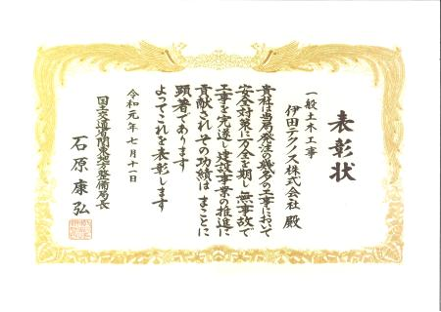 表彰状
一般土木工事
伊田テクノス株式会社 殿
貴社は当局発注の幾多の工事において
安全対策に万全を期し無事故で
工事を完遂し建設事業の推進に
貢献されその功績はまことに
顕著であります
よってこれを表彰します
令和元年七月十一日
国土交通省関東地方整備局長
石原康弘